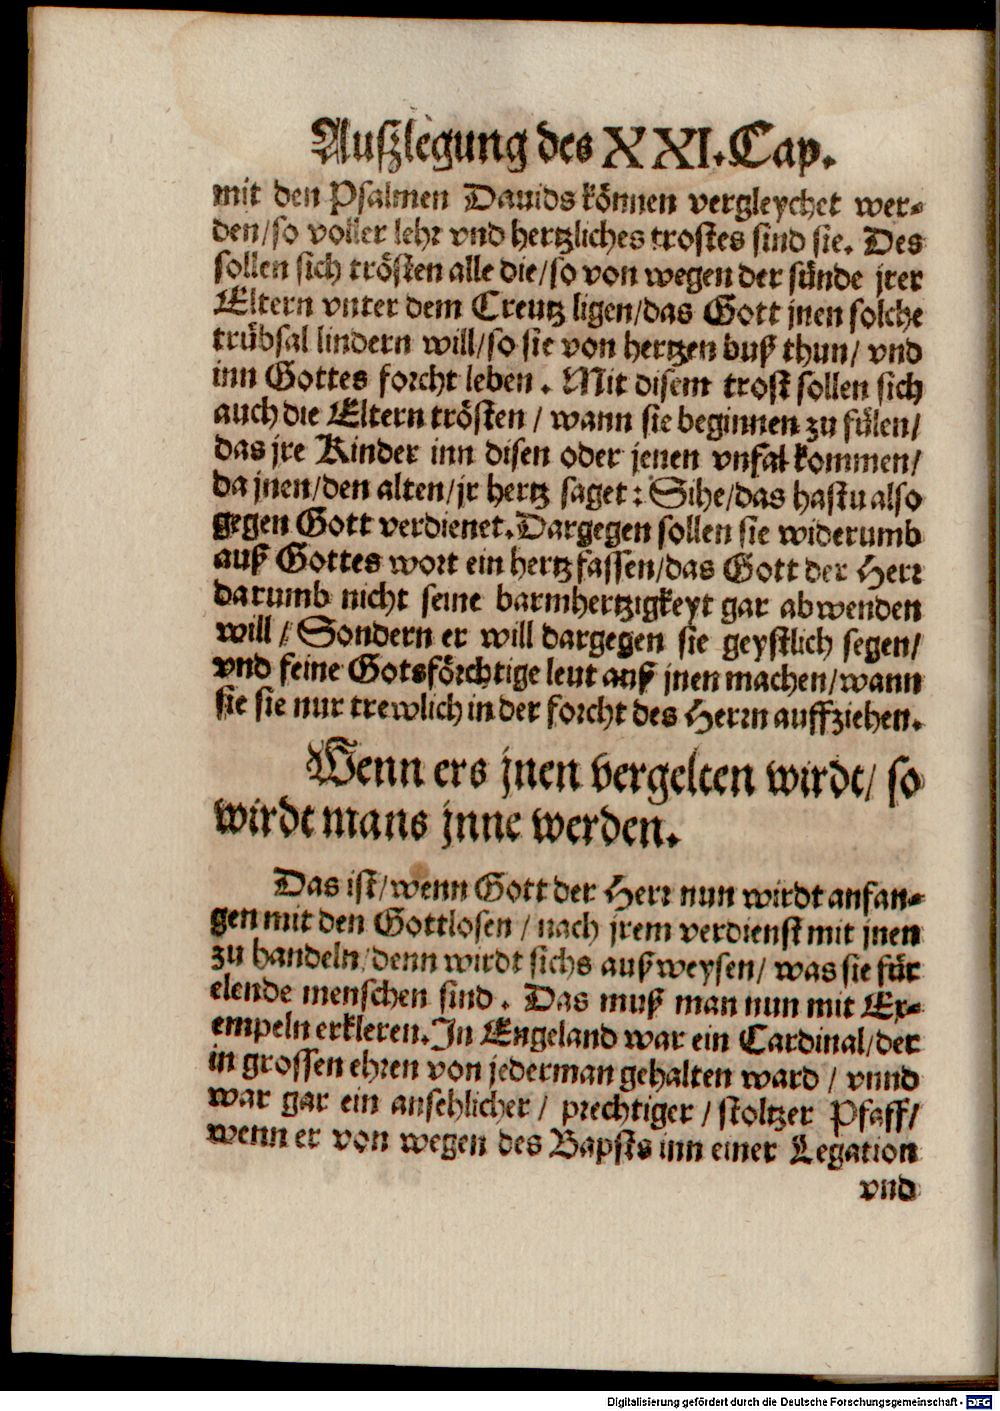 Außlegung des XXI. Cap.
mit den Psalmen Dauids können vergleychet wer⸗
den/ so voller lehr vnd hertzliches trostes sind sie. Des
sollen sich trösten alle die/ so von wegen der sünde jrer
Eltern vnter dem Creutz ligen/ das Gott jnen solche
trübsal lindern will/ so sie von hertzen buß thun/ vnd
inn Gottes forcht leben. Mit disem trost sollen sich
auch die Eltern trösten / wann sie beginnen zu fülen/
das jre Kinder inn disen oder jenen vnfal kommen/
da jnen/ den alten/ jr hertz saget: Sihe/ das hastu also
gegen Gott verdienet. Dargegen sollen sie widerumb
auß Gottes wort ein hertz fassen/ das Gott der Herr
darumb nicht seine barmhertzigkeyt gar abwenden
will / Sondern er will dargegen sie geystlich segen/
vnd feine Gotsförchtige leut auß jnen machen/ wann
sie sie nur trewlich in der forcht des Herrn auffziehen.
Wenn ers jnen vergelten wirdt/ so
wirdt mans jnne werden.
Das ist/ wenn Gott der Herr nun wirdt anfan⸗
gen mit den Gottlosen / nach jrem verdienst mit jnen
zu handeln/ denn wirdt sichs außweysen/ was sie für
elende menschen sind. Das muß man nun mit Ex⸗
empeln erkleren. In Engeland war ein Cardinal/ der
in grossen ehren von jederman gehalten ward / vnnd
war gar ein ansehlicher / prechtiger / stoltzer Pfaff/
wenn er von wegen des Bapsts inn einer Legation
vnd
Digitalisierung gefördert durch die Deutsche Forschungsgemeinschaft - DFG